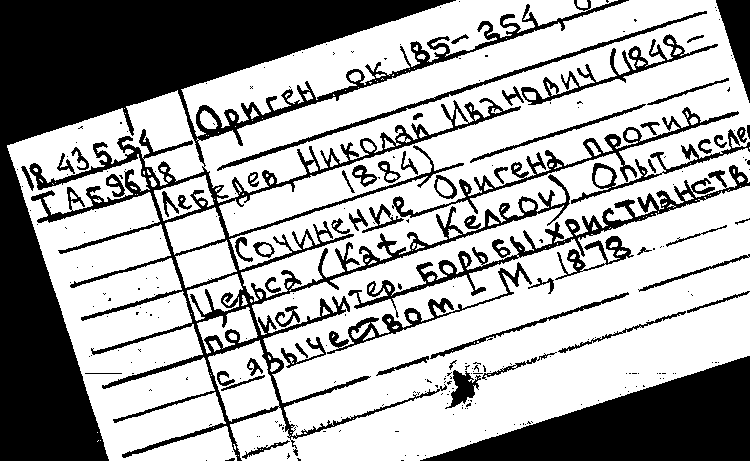 Ориген, ок. 185-254, о
18.43.5.54
I А 5.9698
Лебедев, Николай Иванович (1848-
1884)
Сочинение Оригена против
Цельса. (Kata Kelsov). Опыт
по ист. литер. борьбы христианств
с язычеством. - М., 1878.